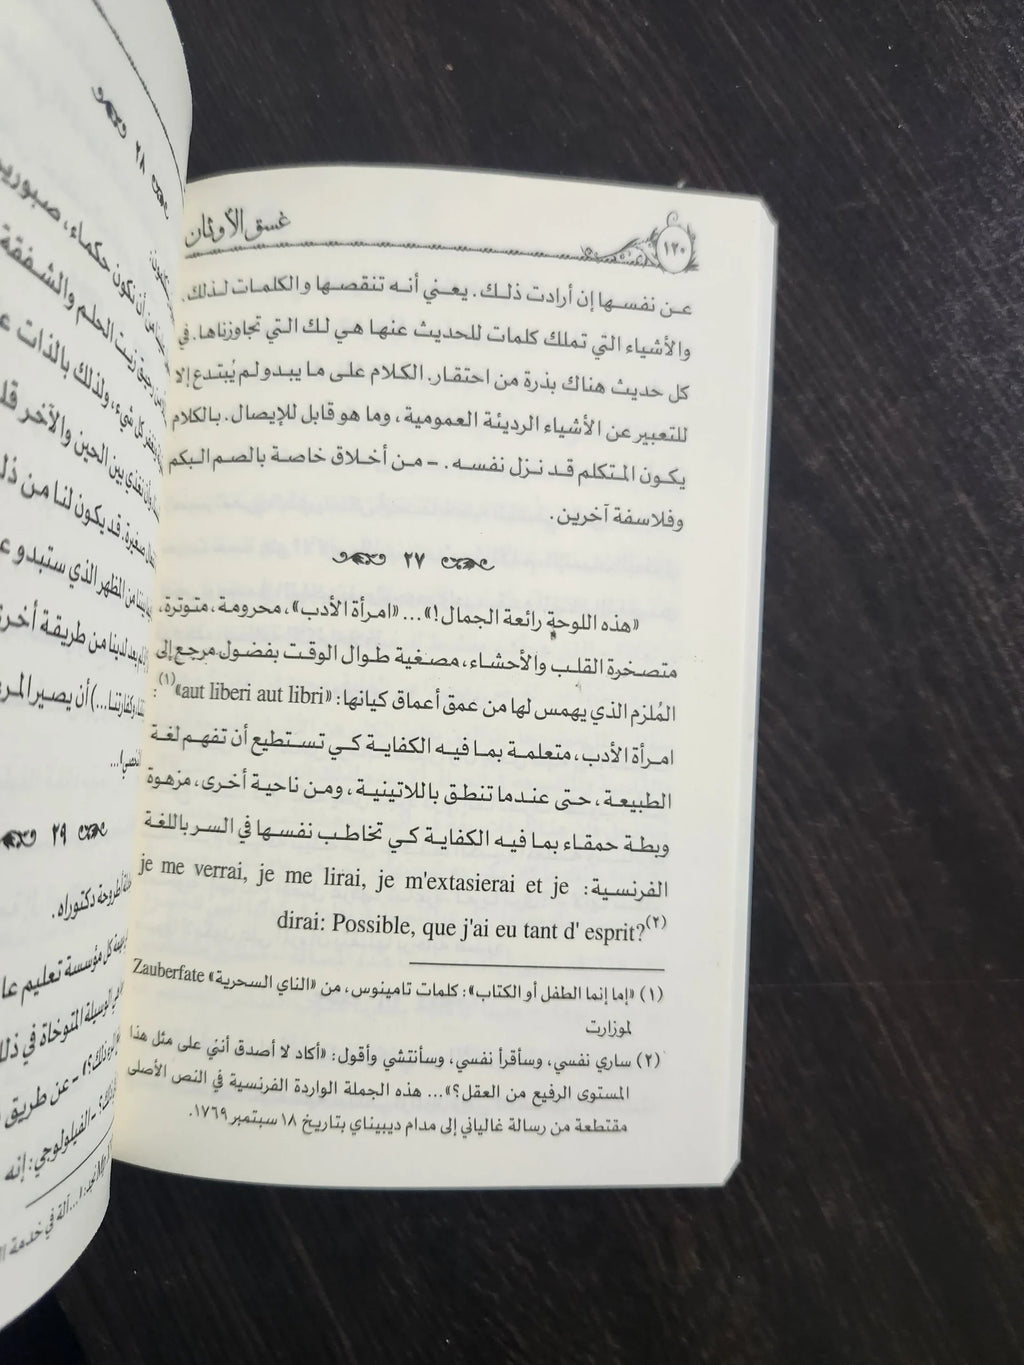 ١٢٠
غسق الأوثان
عن نفسها إن أرادت ذلك. يعني أنه تنقصها والكلمات لذلك.
والأشياء التي تملك كلمات للحديث عنها هي لك التي تجاوزناها. في
كل حديث هناك بذرة من احتقار. الكلام على ما يبدو لم يُبتدع إلا
للتعبير عن الأشياء الرديئة العمومية، وما هو قابل للإيصال. بالكلام
يكون المتكلم قد نزل نفسه. - من أخلاق خاصة بالصم البكم
وفلاسفة آخرين.
٢٧
«هذه اللوحة رائعة الجمال!»... «امرأة الأدب»، محرومة، متوترة،
متصخرة القلب والأحشاء، مصغية طوال الوقت بفضول مرجع إلى
المُلزم الذي يهمس لها من عمق أعماق كيانها: «aut liberi aut libri»(١):
امرأة الأدب، متعلمة بما فيه الكفاية كي تستطيع أن تفهم لغة
الطبيعة، حتى عندما تنطق باللاتينية، ومن ناحية أخرى، مزهوة
وبطة حمقاء بما فيه الكفاية كي تخاطب نفسها في السر باللغة
الفرنسية: je me verrai, je me lirai, je m'extasierai et je
dirai: Possible, que j'ai eu tant d' esprit?(٢)
(١) «إما إنما الطفل أو الكتاب»: كلمات تامينوس، من «الناي السحرية» Zauberfate
لموزارت
(٢) ساري نفسي، وسأقرأ نفسي، وسأنتشي وأقول: «أكاد لا أصدق أنني على مثل هذا
المستوى الرفيع من العقل؟»... هذه الجملة الواردة الفرنسية في النص الأصلي
مقتطعة من رسالة غالياني إلى مدام ديبيناي بتاريخ ١٨ سبتمبر ١٧٦٩.
٢٨
أن نكون حكماء، صبورين
زيت الحلم والشفقة
كل شيء، ولذلك بالذات
بين الحين والآخر
صغيرة. قد يكون لنا من
من المظهر الذي ستبدو
لدينا من طريقة أخرى
أن يصير المر
٢٩
أطروحة دكتوراه.
كل مؤسسة تعليم
الوسيلة المتوخاة في
عن طريق
الفيلولوجي: إنه
آلة في خدمة